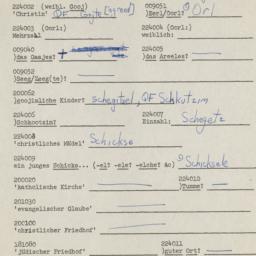 224002 (weibl. Gooj) 009051
'Christin' QF Gojte (agreed) )Eerl/Oorl? Orl
224003 (Oorl:) 224004 (Oorl:)
Mehrzahl weiblich:
009040 224005
)das Gaaſje? + )das Areelez?
009052
)Seeg/Leeg(te)?
200062
')goojische Kinder? Schegitzel, QF Schkutzim
224006 224007
)Schkootzim? Einzahl: Schegetz
224008
'christliches Mädel' Schickse
224009
ein junges Schicks... (-el? -ele? -elche? &c) Schicksele
200020 224010
'katholische Kirche' )Tumme?
201030
'evangelischer Glaube'
200100
'christlicher Friedhof'
181080 224011
'jüdischer Friedhof' )guter Ort?